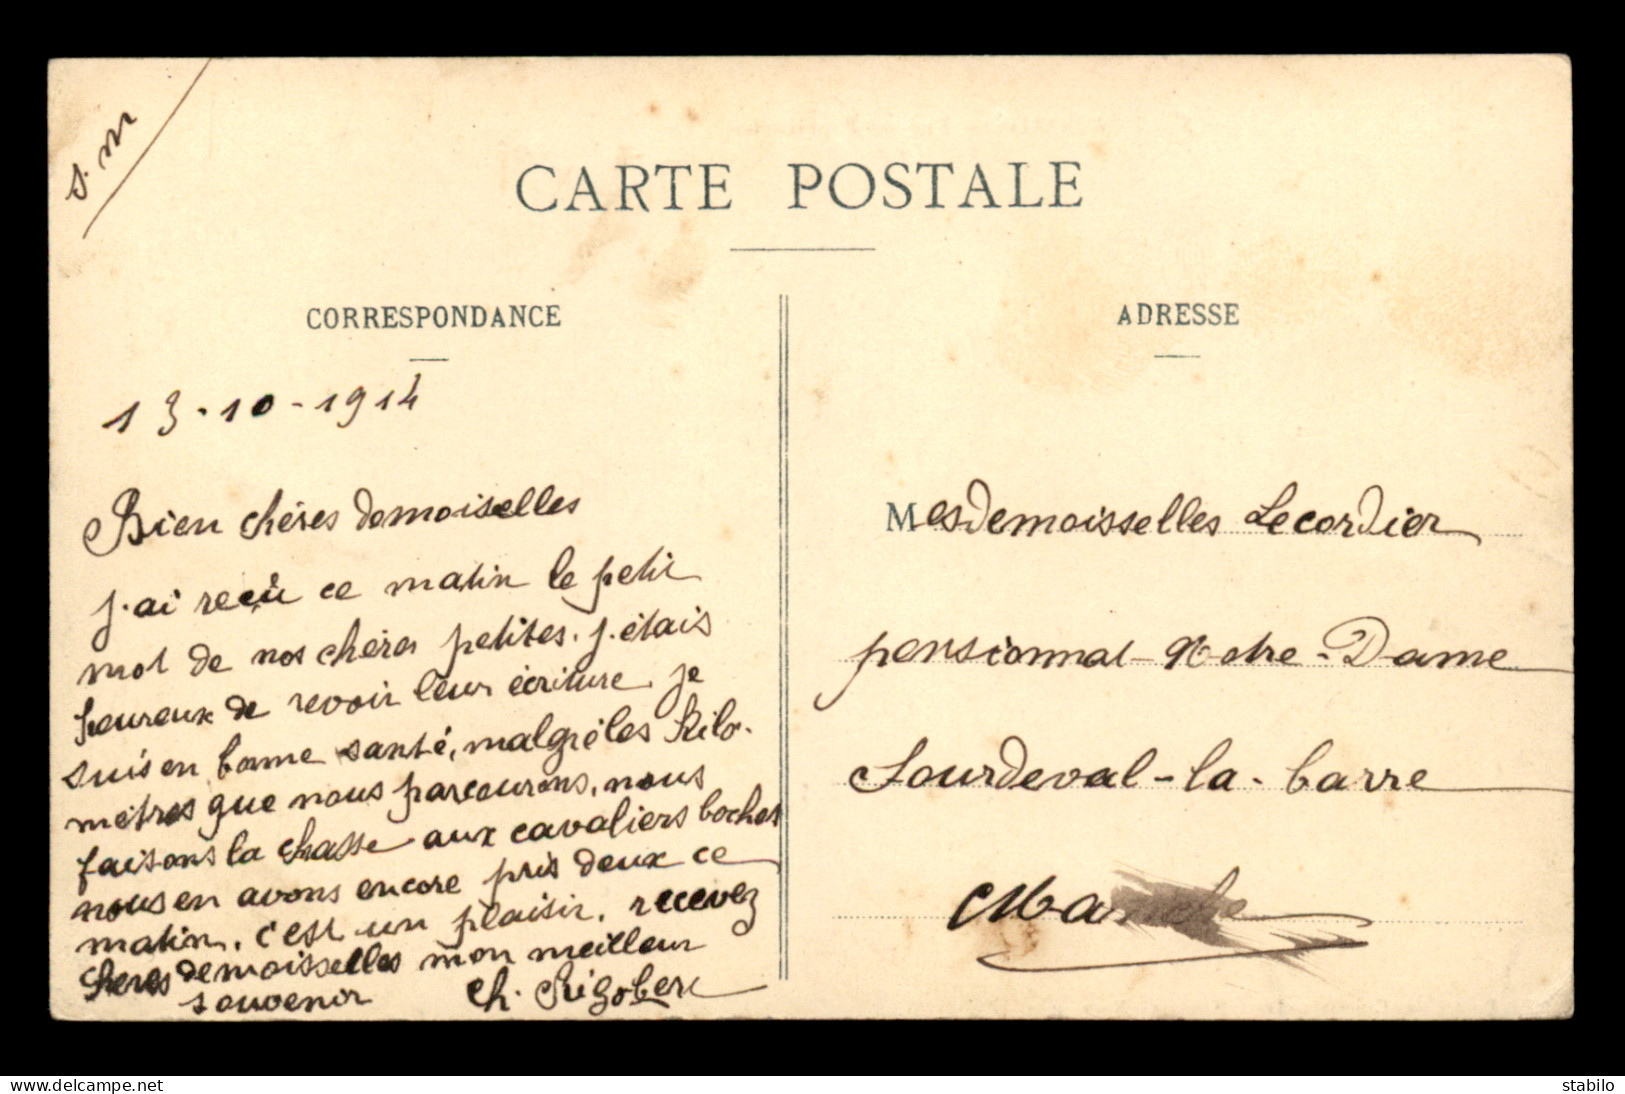 s.m
CARTE POSTALE
CORRESPONDANCE
13.10-1914
Bien chéres demoiselles
j'ai reçu ce matin le petit
mot de nos chéres petites. j'étais
heureux de revoir leur écriture. je
suis en bonne santé, malgré les kilo-
mètres que nous parcourons, nous
faisons la chasse aux cavaliers boches
nous en avons encore pris deux ce
matin, c'est un plaisir, recevez
cheres demoisselles mon meilleur
souvenir Ch. Rigobert
ADRESSE
Mesdemoisselles Lecordier
pensionnat-Notre-Dame
Sourdeval-la-barre
Manche
www.delcampe.net
stabilo